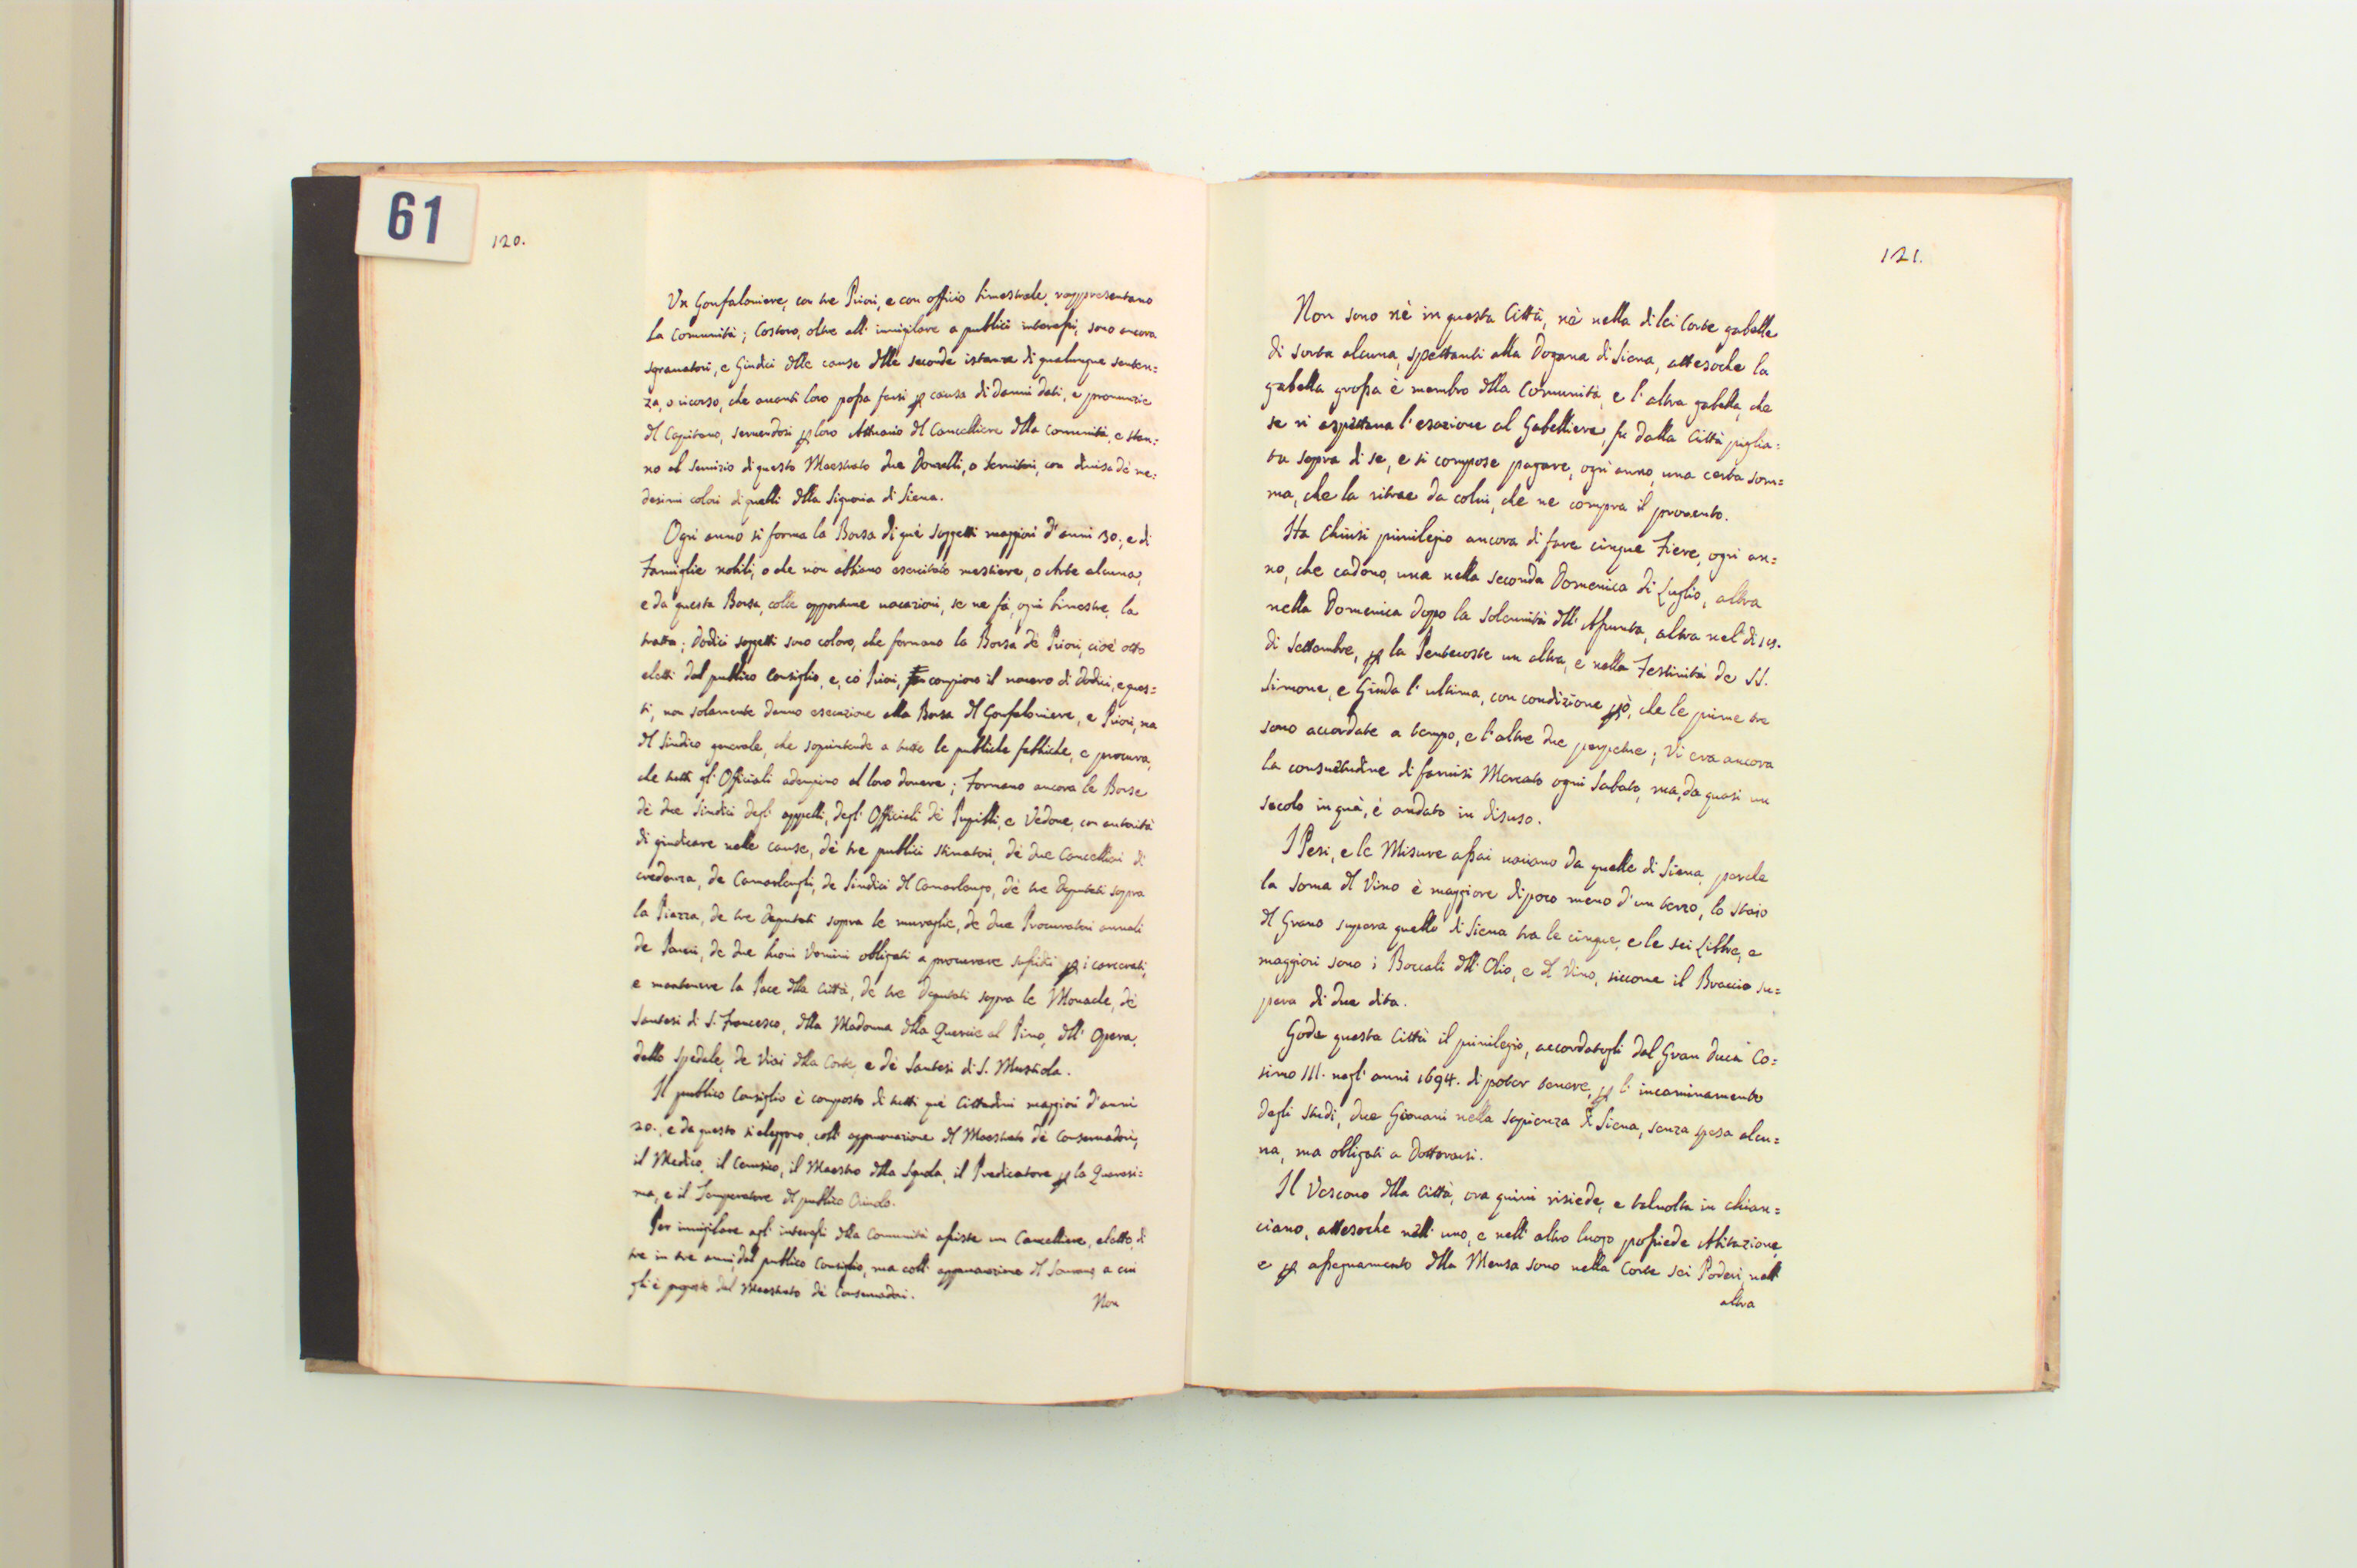 61
120.
Un Gonfaloniere, con tre Priori, e con officio bimestrale, rappresentano
la Comunità; Costoro, oltre all' invigilare a publici interessi, sono ancora
sgravatori, e Giudici dlle cause dlle seconde istanze di qualunque senten=
za, o ricorso, che avanti loro possa farsi p causa di Danni dati, e pronunzie
dl Capitano, servendosi p loro Attuario dl Cancelliere dlla Comunità, e stan=
no al servizio di questo Maestrato due Donzelli, o Servitori, con divisa de me=
desimi colori di quelli dlla Signoria di Siena.
Ogni anno si forma la Borsa di què soggetti maggiori d'anni 30; e di
Famiglie nobili, o che non abbiano esercitato mestiere, o Arte alcuna,
e da questa Borsa, colle opportune vacazioni, se ne fà, ogni bimestre, la
tratta; Dodici soggetti sono coloro, che formano la Borsa dè Priori, cioè otto
eletti dal publico Consiglio, e, cò Priori, compiono il novero di Dodici, e ques=
ti, non solamente danno esecuzione alla Borsa dl Gonfaloniere, e Priori, ma
dl Sindico generale, che soprintende a tutte le publiche fabbriche, e procura,
che tutti gl' Officiali adempino al loro dovere; Formano ancora le Borse
dè due Sindici degl' appelli, degl' Officiali dè Pupilli, e Vedove, con autorità
di giudicare nelle cause, dè tre publici stimatori, dè due Cancellieri di
credenza, de Camarlenghi, de Sindici dl Camarlengo, dè tre Deputati sopra
la Piazza, de tre Deputati sopra le muraglie, de due Procuratori annali
de Poveri, de due buoni Uomini obligati a procurare sussidi p i carcerati,
e mantenere la Pace dlla Città, de tre Deputati sopra le Monache, dè
Santesi di S. Francesco, dlla Madonna dlla Quercie al Pino, dll' Opera,
dello Spedale, de Viai dlla Corte, e dè Santesi di S. Mustiola.
Il publico Consiglio è composto di tutti què Cittadini maggiori d'anni
20., e da questo si eleggono, coll' approvazione dl Maestrato dè Conservadori,
il Medico, il Cerusico, il Maestro dlla Squola, il Predicatore p la Quaresi=
ma, e il Temperatore dl publico Oriuolo.
Per invigilare agl' interessi dlla Comunità assiste un Cancelliere, eletto, di
tre in tre anni, dal publico Consiglio, ma coll' approvazione dl Sovrano, a cui
gli è proposto dal Maestrato dè Conservadori.
Non
121.
Non sono nè in questa Città, nè nella di lei Corte gabelle
di sorta alcuna, spettanti alla Dogana di Siena, attesoche la
gabella grossa è membro dlla Comunità, e l' altra gabella, che
se ri aspettava l' esazione al Gabelliere, fu dalla Città piglia=
ta sopra di se, e si compose pagare, ogni anno, una certa som=
ma, che la ritrae da colui, che ne compra il provento.
Ha Chiusi privilegio ancora di fare cinque Fiere, ogni an=
no, che cadono, una nella seconda Domenica di Luglio, altra
nella Domenica dopo la solennità dll' Assunta, altra nel dì 14.
di Settembre, p la Pentecoste un altra, e nella Festività de SS.
Simone, e Giuda l' ultima, con condizione pò, che le prime tre
sono accordate a tempo, e l' altre due perpetue; Vi era ancora
la consuetudine di farvisi Mercato ogni Sabato, ma, da quasi un
secolo in quà, è andato in disuso.
I Pesi, e le Misure assai variano da quelle di Siena, perche
la Soma dl Vino è maggiore di poco meno d' un terzo, lo staio
dl Grano supera quello di Siena tra le cinque, e le sei Libbre, e
maggiori sono i Boccali dll' Olio, e dl Vino, siccome il Braccio su=
pera di due dita.
Gode questa Città il privilegio, accordatogli dal Gran Duca Co=
simo III. negl' anni 1694. di poter tenere, p l' incaminamento
degli studi, due Giovani nella Sapienza di Siena, senza spesa alcu=
na, ma obligati a Dottorarsi.
Il Vescovo dlla Città, ora quivi risiede, e talvolta in Chian=
ciano, attesoche nell' uno, e nell' altro luogo possiede Abitazione,
e p assegnamento dlla Mensa sono nella Corte sei Poderi, nell'
altra